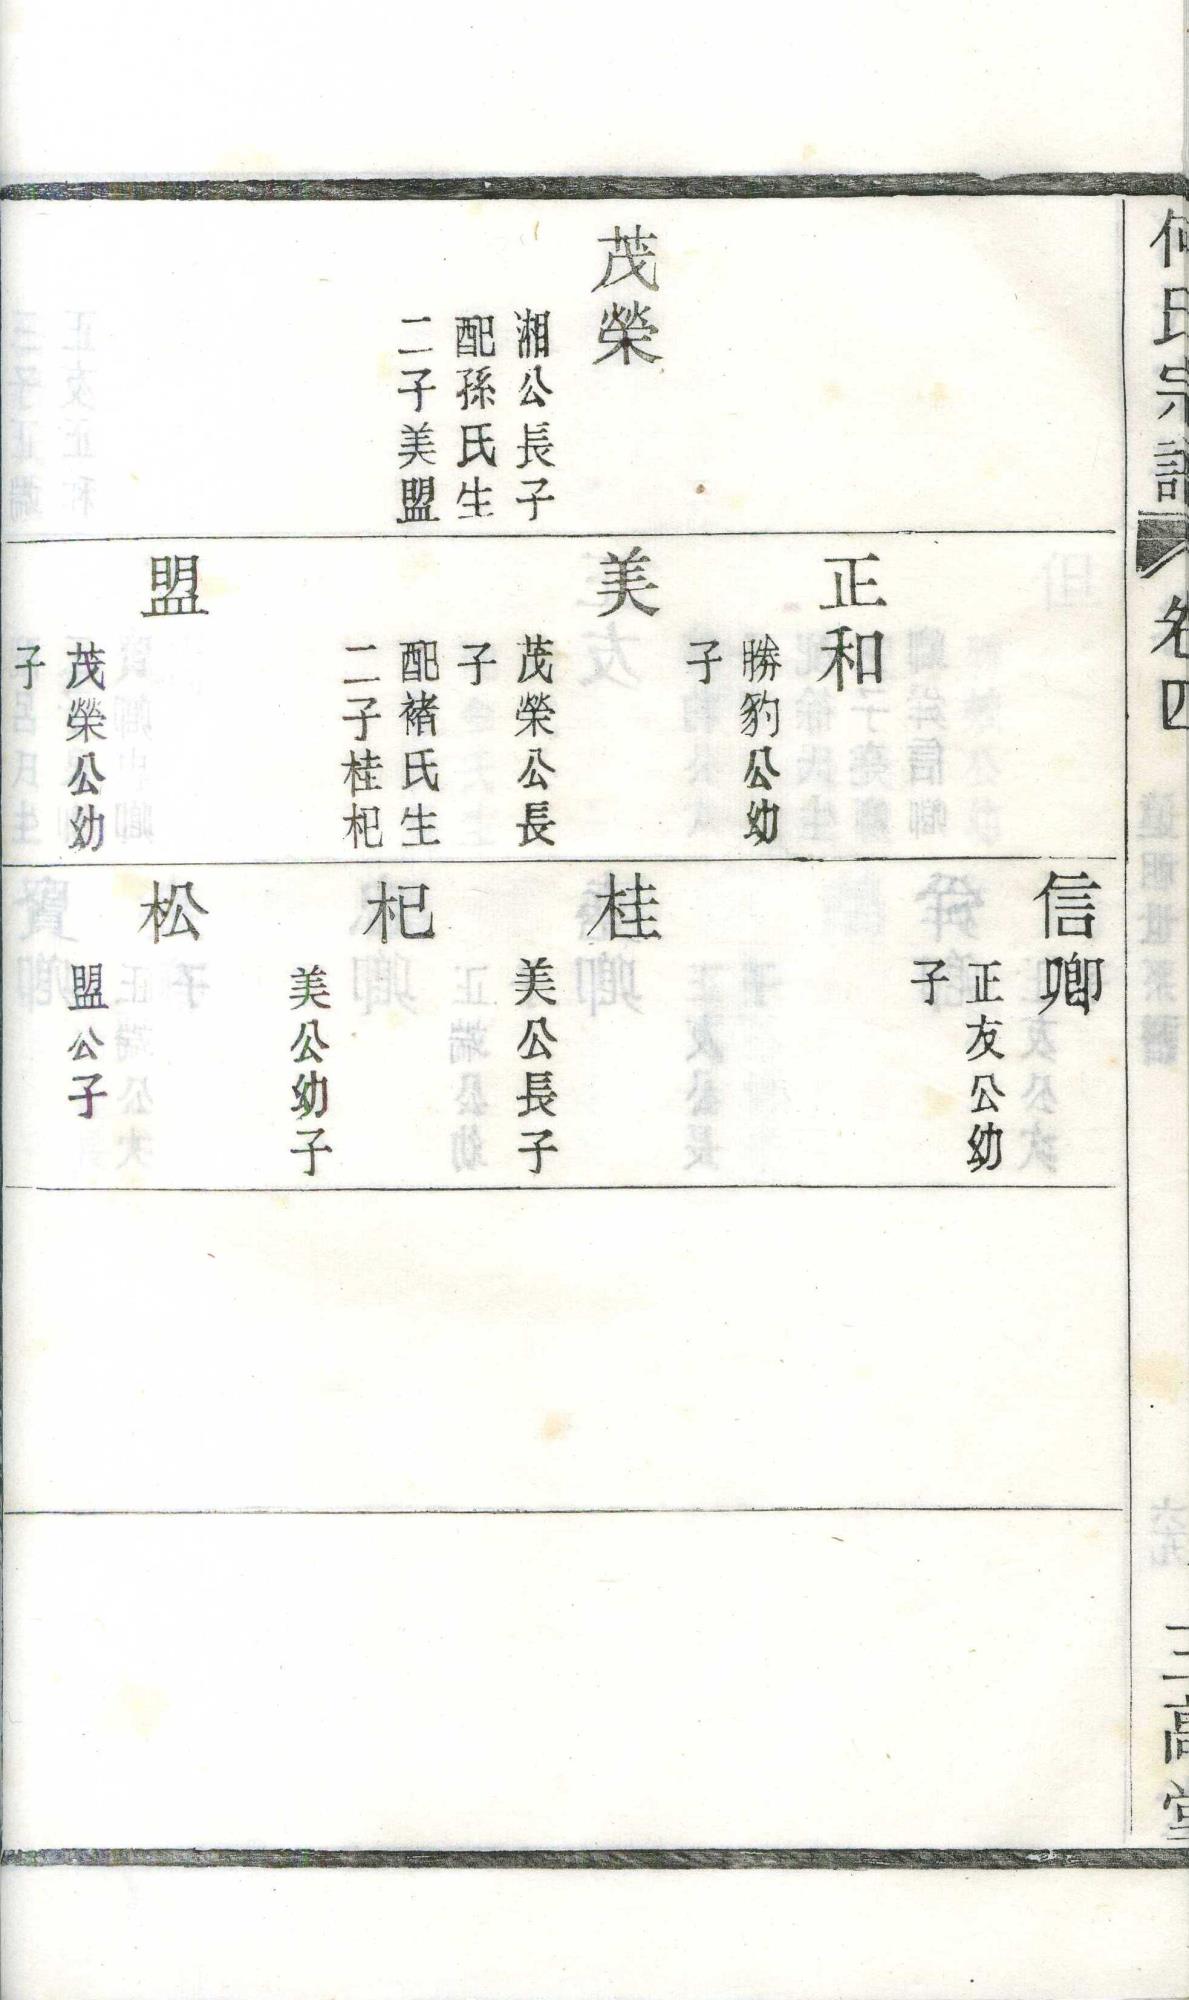 何氏宗譜
卷四
三高堂
茂榮
湘公長子
配孫氏生
二子美盟
正和
勝豹公幼
子
美
茂榮公長
子
配褚氏生
二子桂杞
盟
茂榮公幼
子
信卿
正友公幼
子
桂
美公長子
杞
美公幼子
松
盟公子